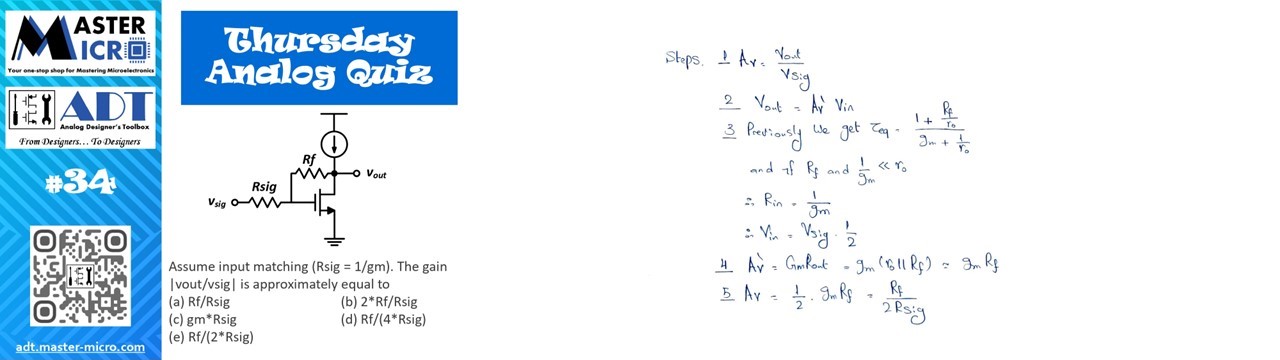 MASTER
MICRO
Your one-stop shop for Mastering Microelectronics
ADT
Analog Designer's Toolbox
From Designers... To Designers
#34
adt.master-micro.com
Thursday
Analog Quiz
Rf
vout
Rsig
vsig
Assume input matching (Rsig = 1/gm). The gain
|vout/vsig| is approximately equal to
(a) Rf/Rsig (b) 2*Rf/Rsig
(c) gm*Rsig (d) Rf/(4*Rsig)
(e) Rf/(2*Rsig)
Steps. 1 Av = Vout/Vsig
2 Vout = Av' Vin
3 Previously we get req = (1 + Rf/ro)/(gm + 1/ro)
and if Rf and 1/gm << ro
∴ Rin = 1/gm
∴ Vin = Vsig . 1/2
4 Av' = Gm Rout = gm (ro || Rf) = gm Rf
5 Av = 1/2 . gm Rf = Rf/2Rsig